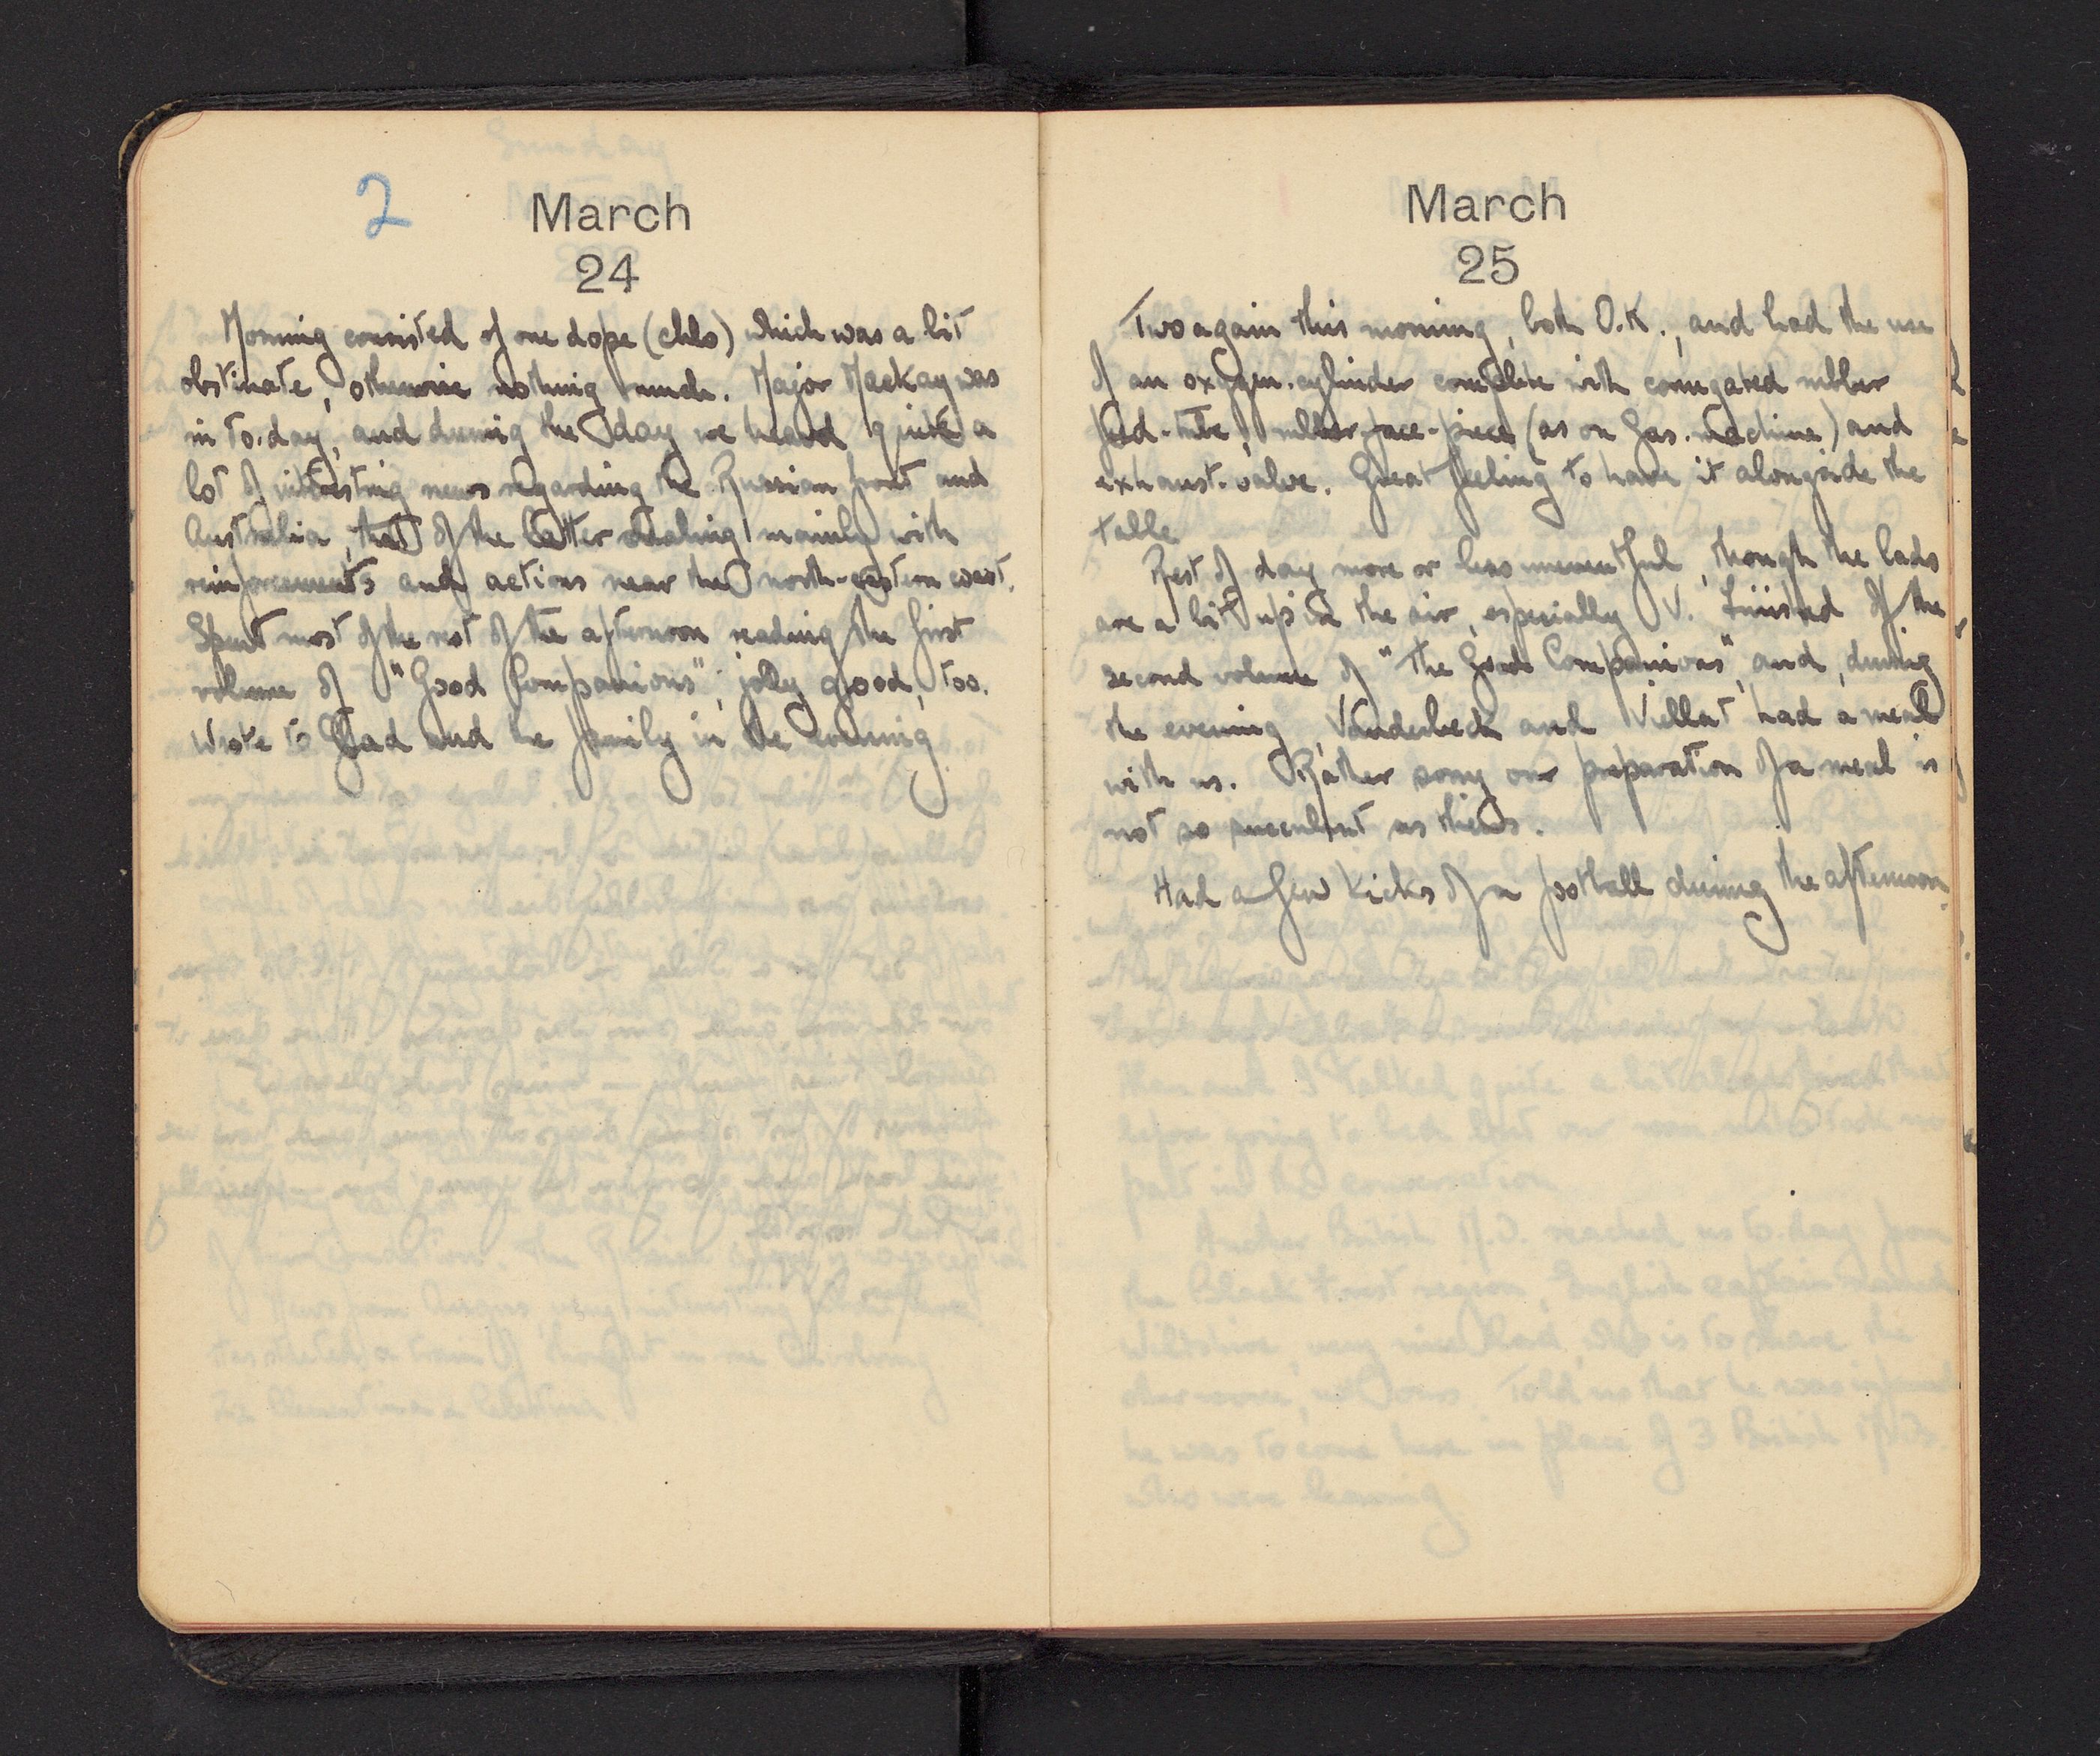 2
March
24
Morning consisted of one dope (chlo) which was a bit
obstinate, otherwise nothing much. Major Mackay was
in to-day, and during the day we heard quite a
lot of interesting news regarding the Russian front and
Australia, that of the latter dealing mainly with
reinforcements and actions near the north-eastern coast.
Spent most of the rest of the afternoon reading the first
volume of "Good Companions"; jolly good, too.
Wrote to Glad and the family in the evening
March
25
Two again this morning, both O.K., and had the use
of an oxygen-cylinder complete with corrugated rubber
feed-tube, rubber face-piece (as on Gas-machine) and
exhaust-valve. Great feeling to have it alongside the
table
Rest of day more or less uneventful, though the lads
are a bit up in the air, especially V. Finished off the
second volume of "The Good Companions", and, during
the evening, Vanderbeck and Viellat had a meal
with us. Rather sorry our preparation of a meal is
not so succulent as theirs.
Had a few kicks of a football during the afternoon.